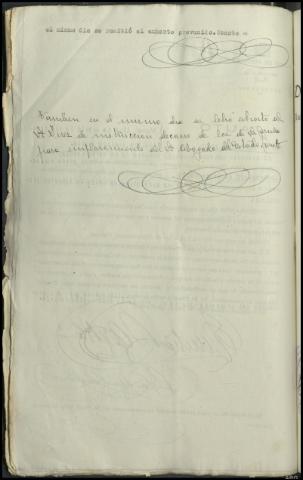 el mismo dia se remitió el exhorto prevenido. Conste =
Tambien en el mismo dia se libró exhorto al
Sr Juez de instruccion decano de los de
para emplazamiento del Sr Abogado del Estado, conste